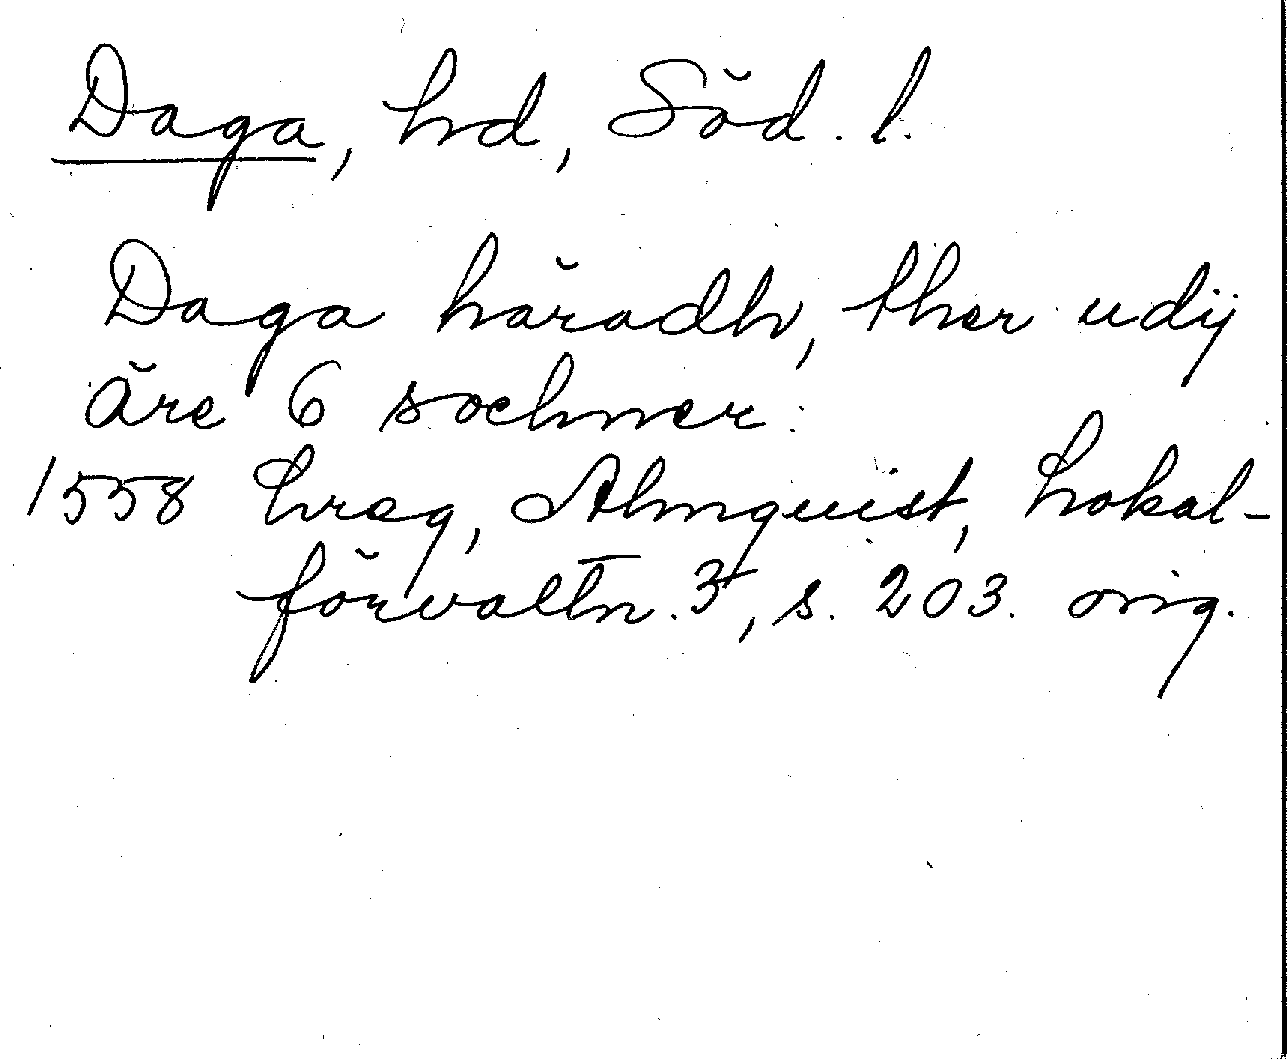 Daga, hd, Söd. l.
Daga häradh, ther udij
äre 6 sochner.
1558 hreg, Almquist, Lokal-
förvaltn. 3, s. 203. orig.